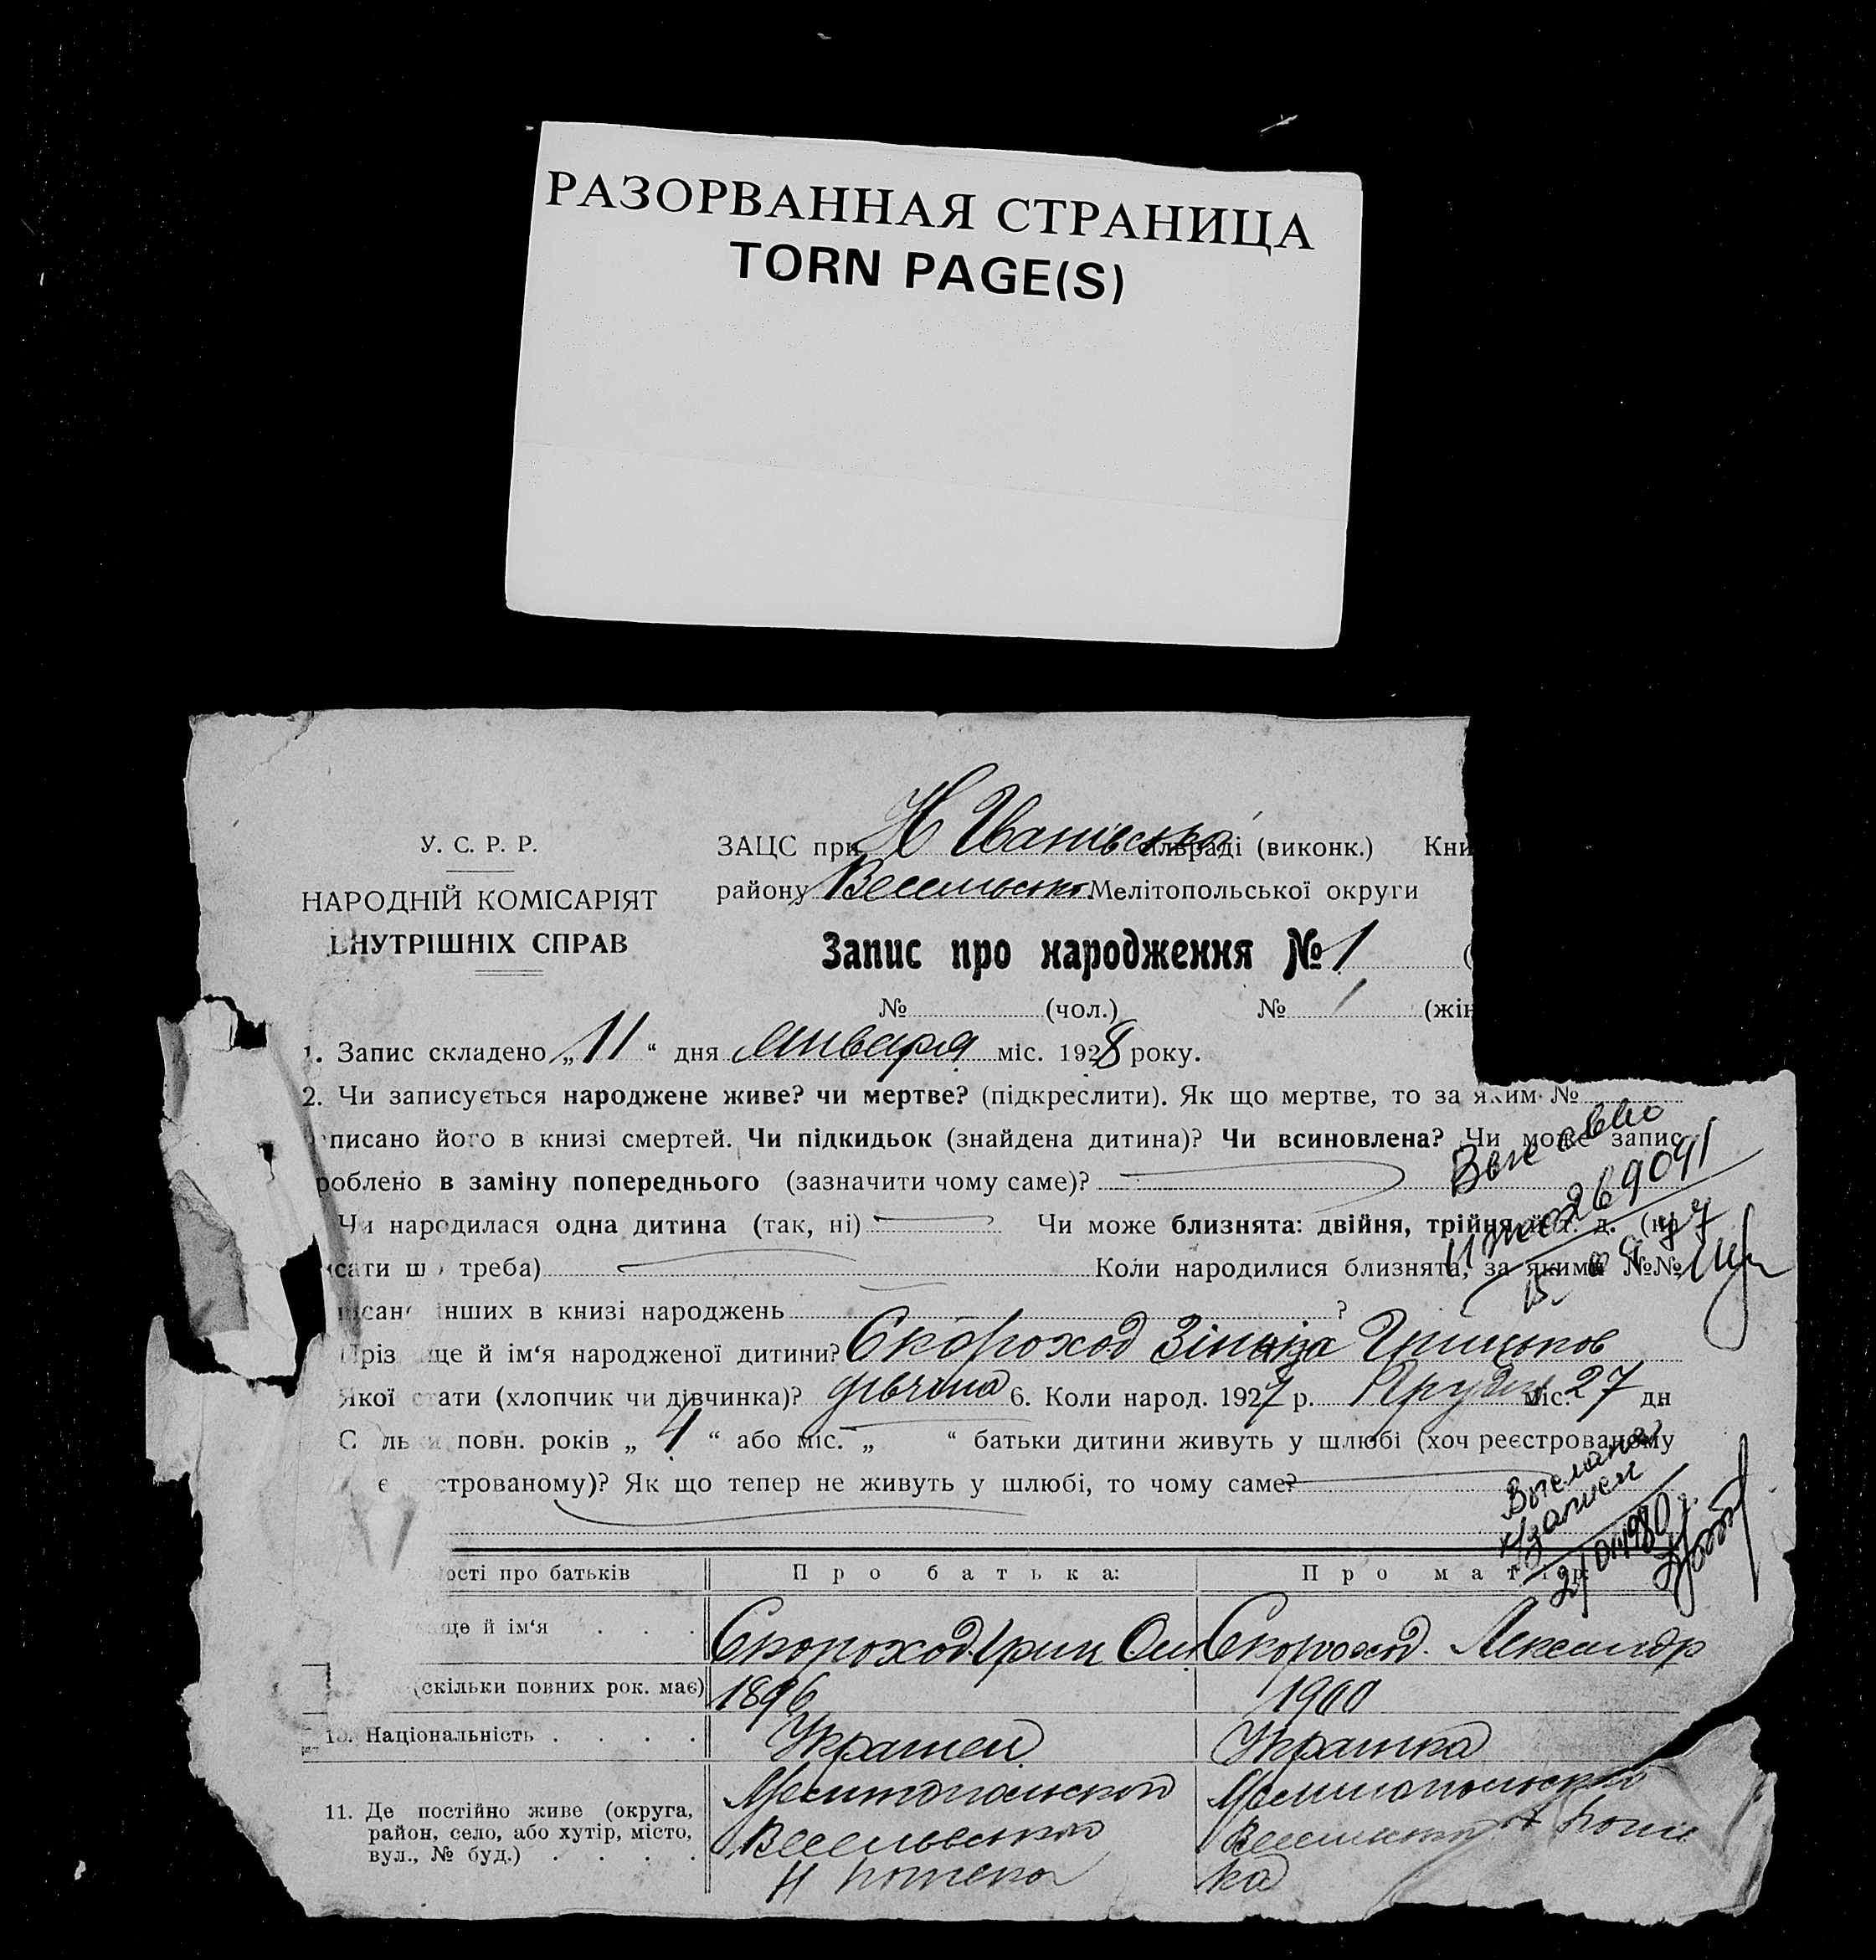 РАЗОРВАННАЯ СТРАНИЦА
TORN PAGE(S)
У. С. Р. Р.
НАРОДНІЙ КОМІСАРІЯТ
ВНУТРІШНІХ СПРАВ
ЗАЦС при Н Іванівська сільраді (виконк.) Кни
району Весельськ. Мелітопольської округи
Запис про народження № 1 (
№ (чол.) № 1 (жін
1. Запис складено „11“ дня января міс. 1928 року.
2. Чи записується народжене живе? чи мертве? (підкреслити). Як що мертве, то за яким №
писано його в книзі смертей. Чи підкидьок (знайдена дитина)? Чи всиновлена? Чи може запис
роблено в заміну попереднього (зазначити чому саме)?
Чи народилася одна дитина (так, ні) Чи може близнята: двійня, трійня й т. д. (на
сати що треба) Коли народилися близнята, за якими №№
писано інших в книзі народжень ?
Прізвище й ім‘я народженої дитини? Скороход Зінаіда Грицьков
Якої стати (хлопчик чи дівчинка)? дівчина 6. Коли народ. 1927 р. Грудн міс. 27 дн
Скільки повн. років „4“ або міс. „ “ батьки дитини живуть у шлюбі (хоч реєстрованому
е строваному)? Як що тепер не живуть у шлюбі, то чому саме?
269041
2/04 1980 г.
ості про батьків Про батька: Про матір:
ще й ім‘я . . . Скороход Гриц Скороход Александр
(скільки повних рок. має) 1896 1900
10. Національність . . . . Украінец Украінка
11. Де постійно живе (округа, Мелитопольской Мелитопольской
район, село, або хутір, місто, Весельвской
вул., № буд.) . . . .